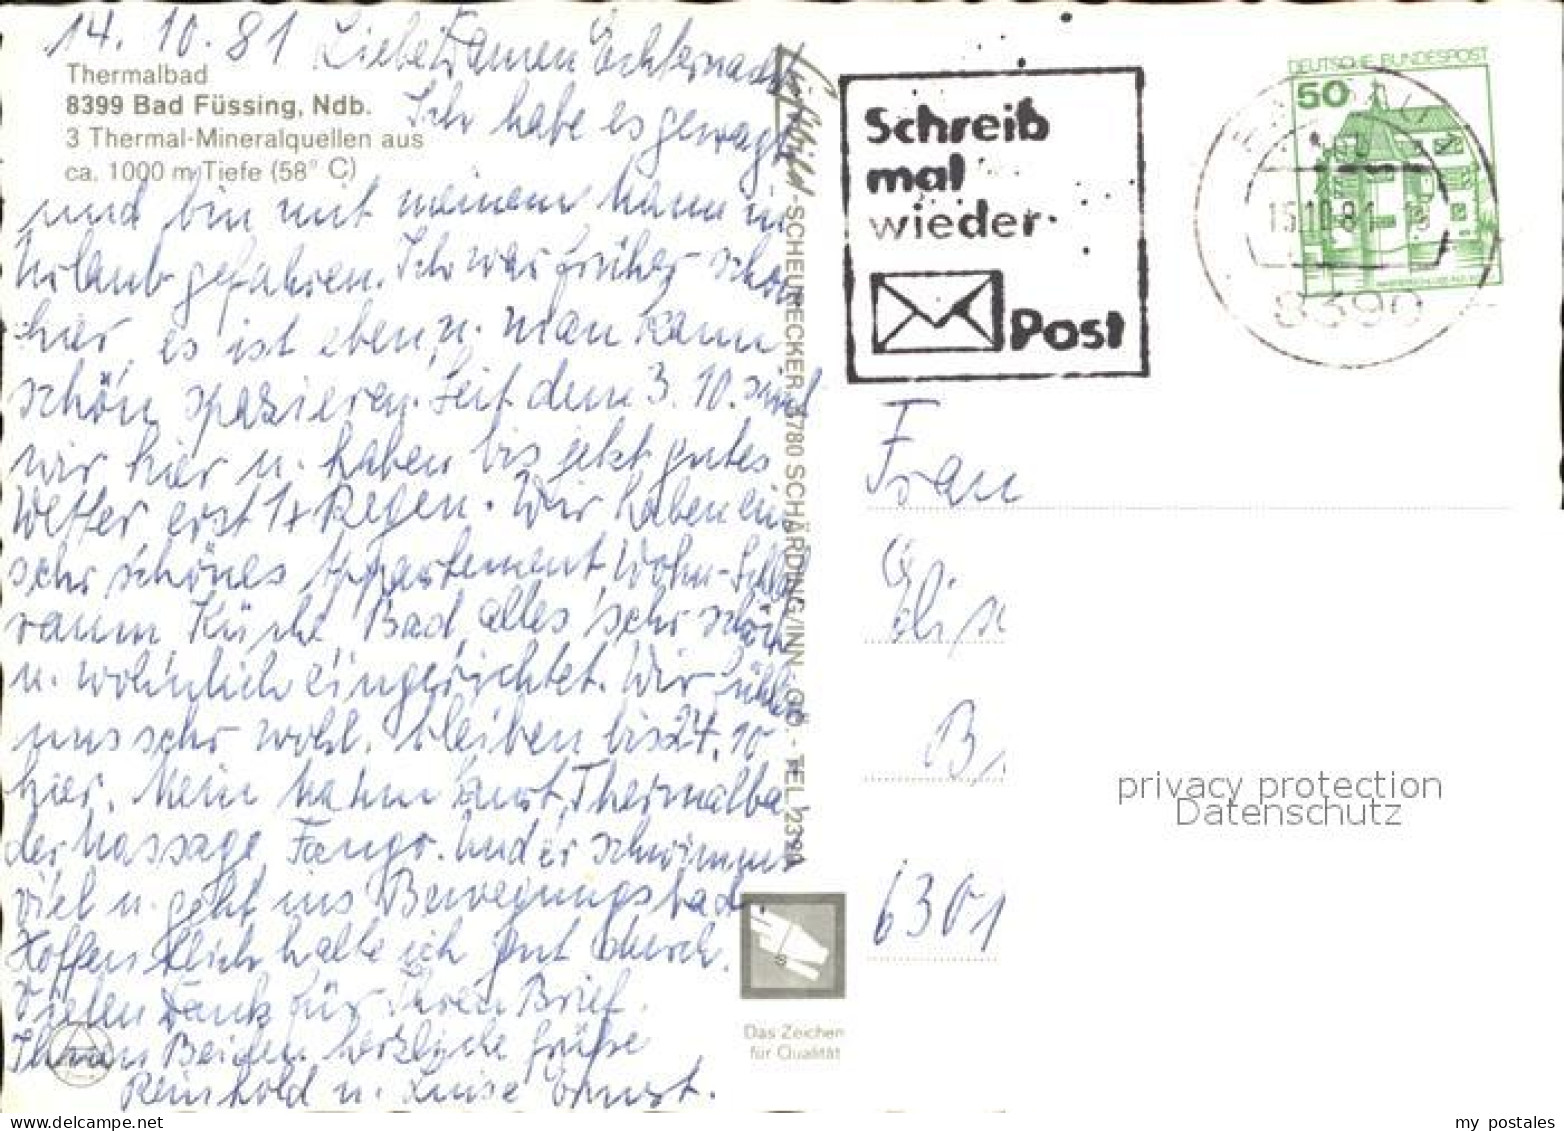 14. 10. 81 Liebe Damen Echternacht
Thermalbad
8399 Bad Füssing, Ndb.
3 Thermal-Mineralquellen aus
ca. 1000 m Tiefe (58° C)
Ich habe es gewagt
und bin mit meinem Mann in
Urlaub gefahren. Ich war früher schon
hier, es ist eben u. man kann
schön spazieren. Seit dem 3. 10. sind
wir hier u. haben bis jetzt gutes
Wetter erst 1x Regen. Wir haben ein
sehr schönes Appartement, Wohn-Schlaf
raum Küche Bad, alles sehr schön
u. wohnlich eingerichtet. Wir fühlen
uns sehr wohl, bleiben bis 24. 10
hier. Mein Mann kurt, Thermalba
der Massage, Fango. Und er schwimmt
viel u. geht ins Bewegungsbad.
Hoffentlich halte ich gut durch.
Vielen Dank für Ihren Brief.
Ihnen Beiden herzliche Grüße
Reinhold u. Luise
SCHEURECKER, 4780 SCHÄRDING/INN
Schreib
mal
wieder
Post
DEUTSCHE BUNDESPOST
50
15.10.81
8390
Frau
6301
Das Zeichen
für Qualität
privacy protection
Datenschutz
my postales